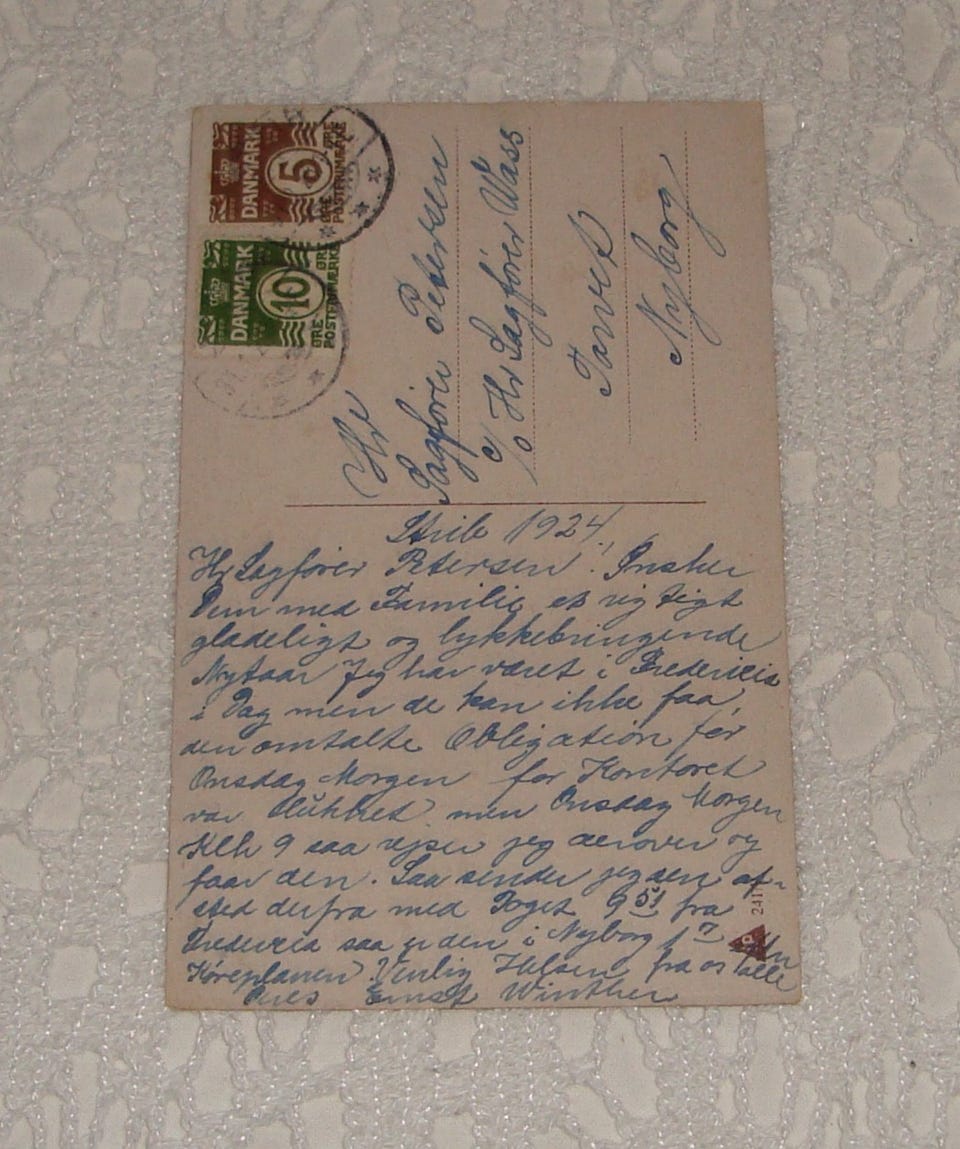 DANMARK
5
ØRE
POSTFRIMÆRKE
DANMARK
10
ØRE
POSTFRIMÆRKE
Hr
Sagfører Petersen
c/o Hr Sagfører Wass
Torvet
Nyborg
Strib 1924
Hr Sagfører Petersen! Ønsker
Dem med Familie et rigtigt
gladeligt og lykkebringende
Nytaar Jeg har været i Fredericia
i Dag men de kan ikke faa
den omtalte Obligation før
Onsdag Morgen for Kontoret
var lukket men Onsdag Morgen
Klk 9 saa rejser jeg derover og
faar den. Saa sender jeg den af-
sted derfra med Toget 9 51 fra
Fredericia saa er den i Nyborg
Køreplanen Venlig Hilsen fra os alle
Deres Ernst Winther
241